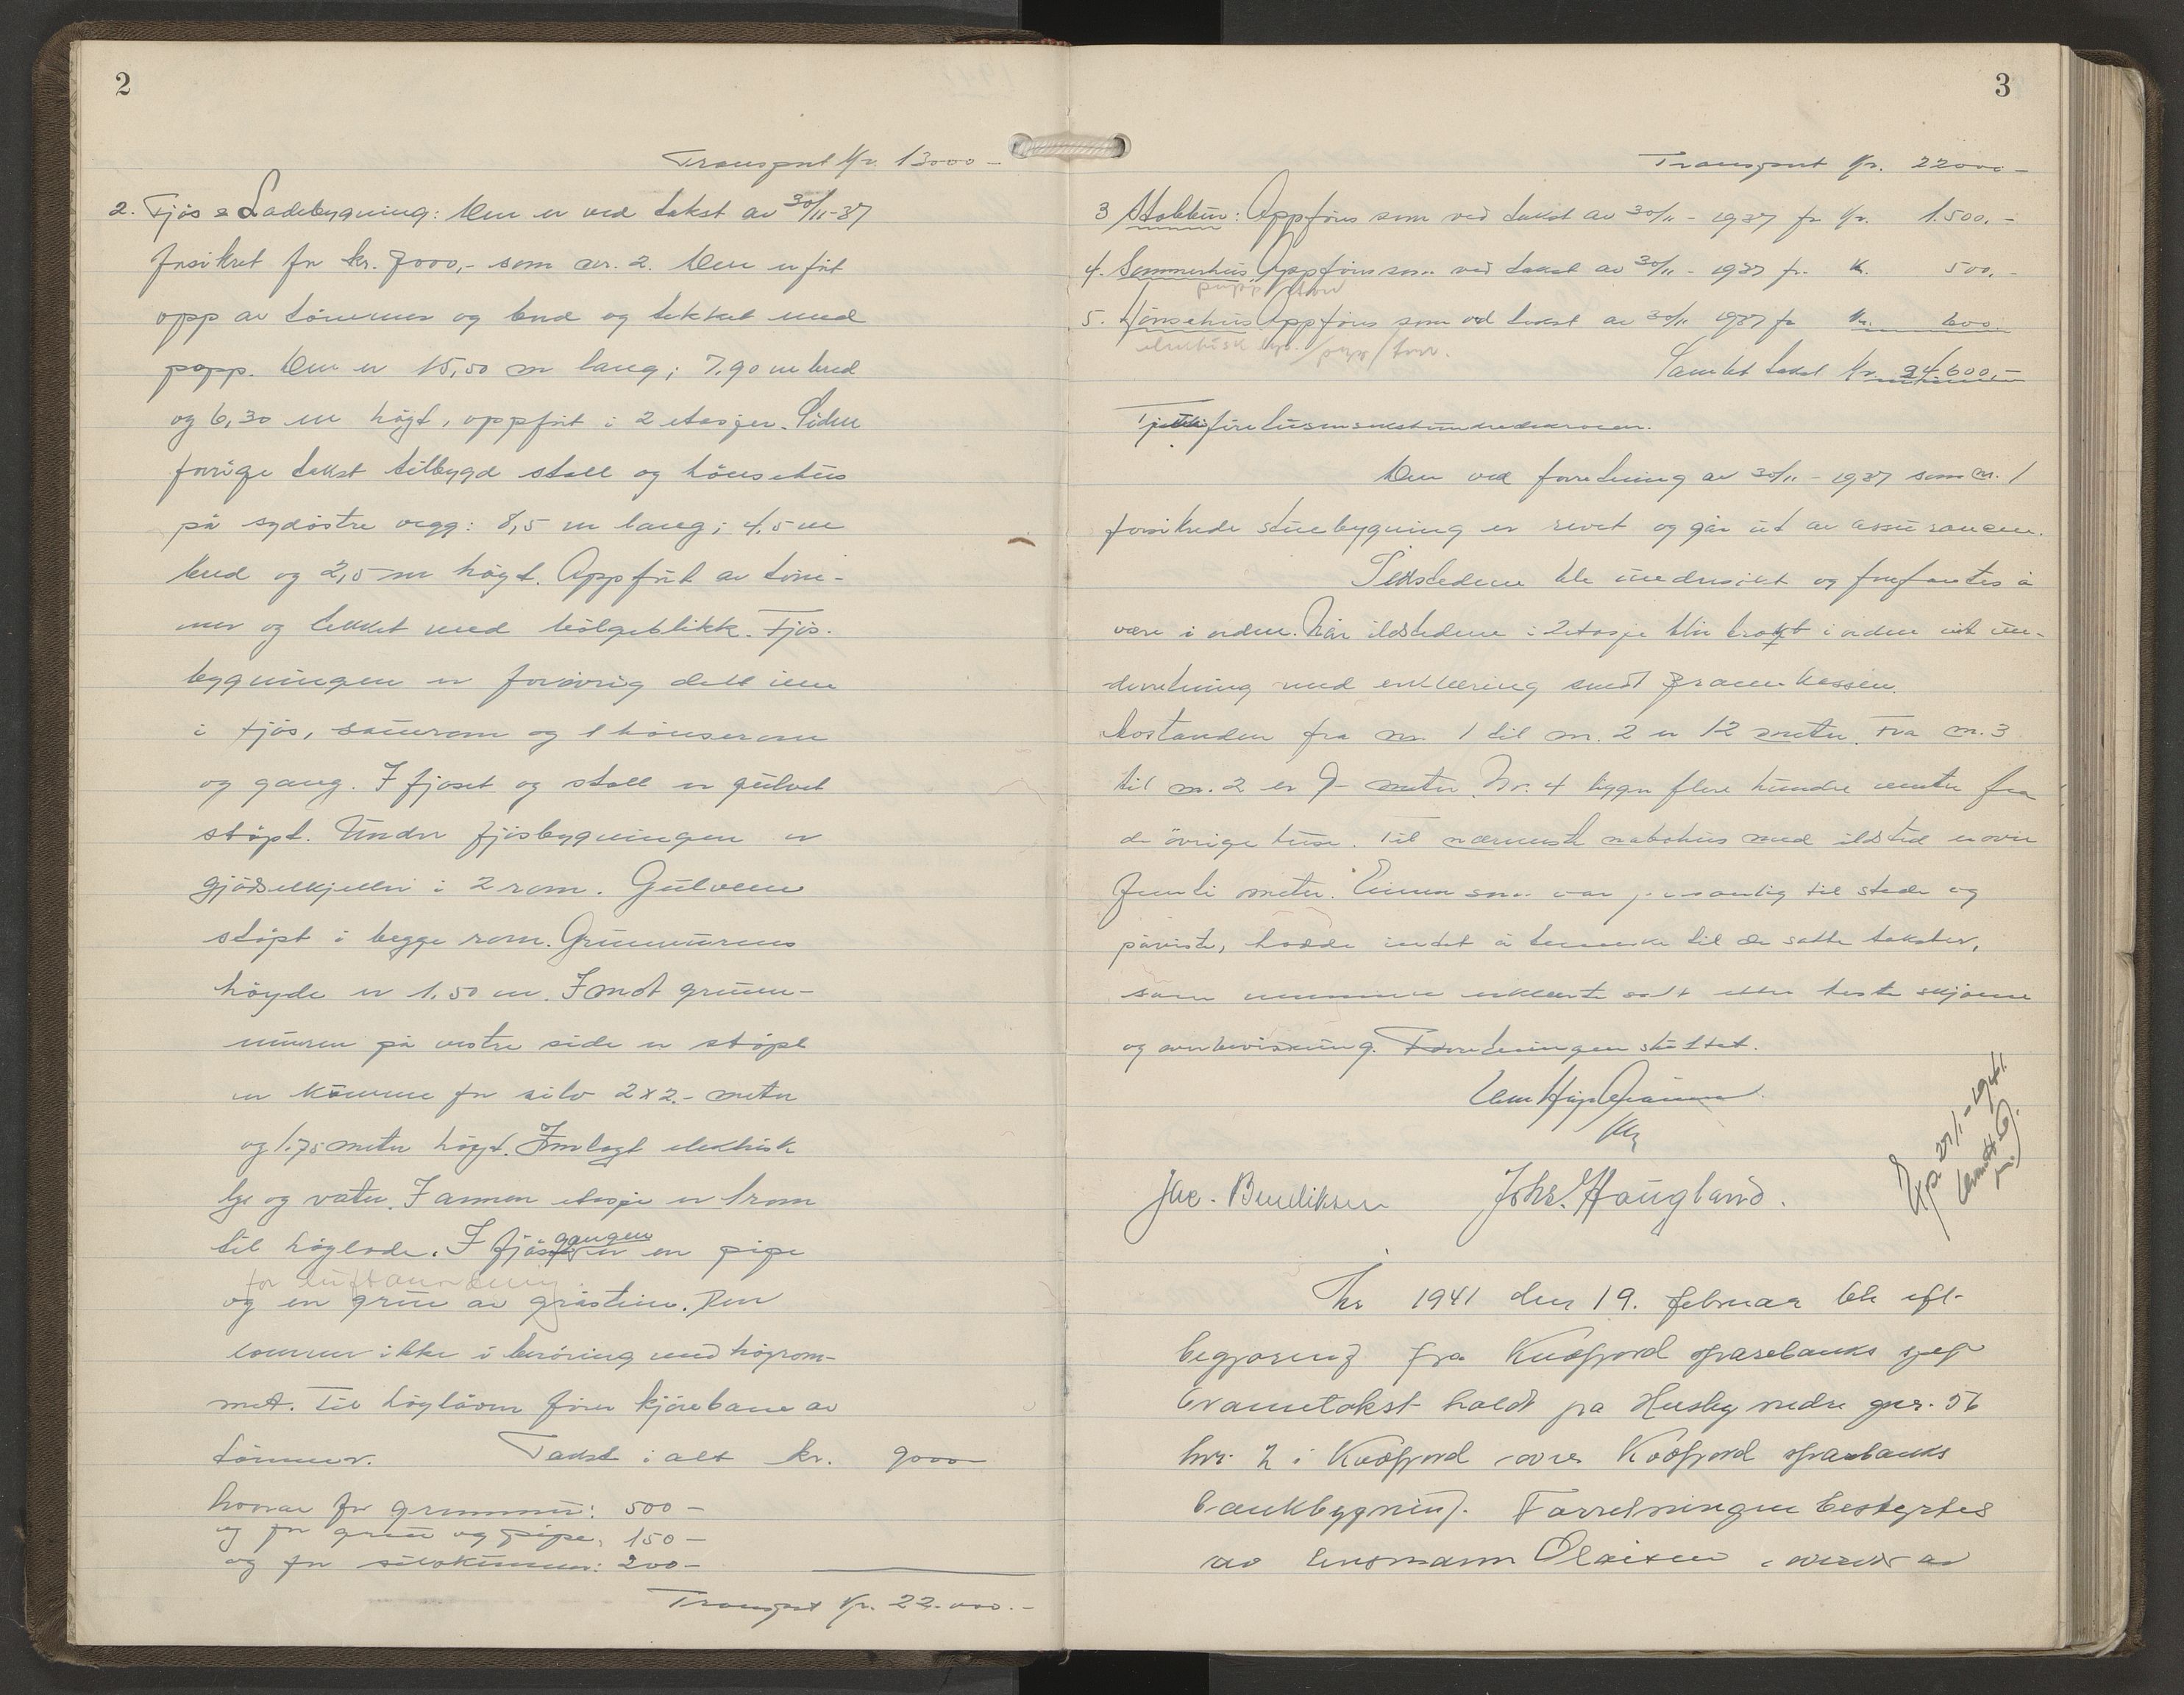 2
Transport kr. 13000 -
2. Fjös & Ladebygning: Den er ved takst av 30/11-37
forsikret for kr. 7000,- som nr. 2. Den er ført
opp av tömmer og bord og tekket med
papp. Den er 15,50 m lang; 7,90 m bred
og 6,30 m högt, oppført i 2 etasjer. Siden
forrige takst tilbygd stall og hönsehus
på sydöstre vegg: 8,5 m lang; 4,5 m
bred og 2,5 m högt. Oppført av töm-
mer og tekket med bölgeblikk. Fjös-
bygningen er forövrig delt inn
i fjös, sauerom og 1 hönserom
og gang. I fjöset og stall er gulvet
stöpt. Under fjösbygningen er
gjödselkjeller i 2 rom. Gulvene
stöpt i begge rom. Grunnmurens
höyde er 1,50 m. I mot grunn-
muren på vestre side er stöpt
en kumme for silo 2x2.- meter
og 1.75 meter högt. Innlagt elektrisk
lys og vatn. I annen etasje er 1 rom
til höylade. I fjös gangen er en pipe
for luftavn
og en grue av gråstein. Den
kommer ikke i beröring med höyrom-
met. Til höylåven förer kjörebane av
tömmer. Takst i alt kr. 9000
hvorav for grunnmur: 500 -
og for grue og pipe: 150 -
og for silokummen: 200 -
Transport kr. 22.000.-
3
Transport kr. 22000 -
3 Stabbur: Oppföres som ved takst av 30/11 - 1937 for kr. 1.500,-
4. Sommerhus Oppföres som ved takst av 30/11 - 1937 for kr. 500,-
papp/torv
5. Hönsehus Oppföres som ved takst av 30/11 1937 for kr. 600
elektrisk lys. / papp/torv.
Samlet takst kr. 24.600,-
Tjuefiretusensekshundredekroner.
Den ved forretning av 30/11 - 1937 som nr. 1
forsikrede stuebygning er revet og går ut av assuransen.
Ildstedene ble undersökt og forefantes å
være i orden. Når ildstedene i 2 etasje blir brakt i orden vil un-
derretning med erklæring sendt Brannkassen.
Avstanden fra nr. 1 til nr. 2 er 12 meter. Fra nr. 3
til nr. 2 er 9 meter. Nr. 4 ligger flere hundre meter fra
de övrige huse. Til nærmeste nabohus med ildsted er over
femti meter. Eieren som var personlig til stede og
påviste, hadde intet å bemerke til de satte takster,
som mennene erklærte satt etter beste skjönn
og overbevisning. Forretningen sluttet.
Jac. Bendiksen Johs. Haugland.
Exp. 27/1 - 1941.
År 1941 den 19. februar ble eft.
begjæring fra Kvæfjord sparebanks sjef
branntakst holdt på Husby nedre gnr. 56
bnr. 2 i Kvæfjord over Kvæfjord sparebanks
bankbygning. Forretningen bestyrtes
av lensmann Olaisen